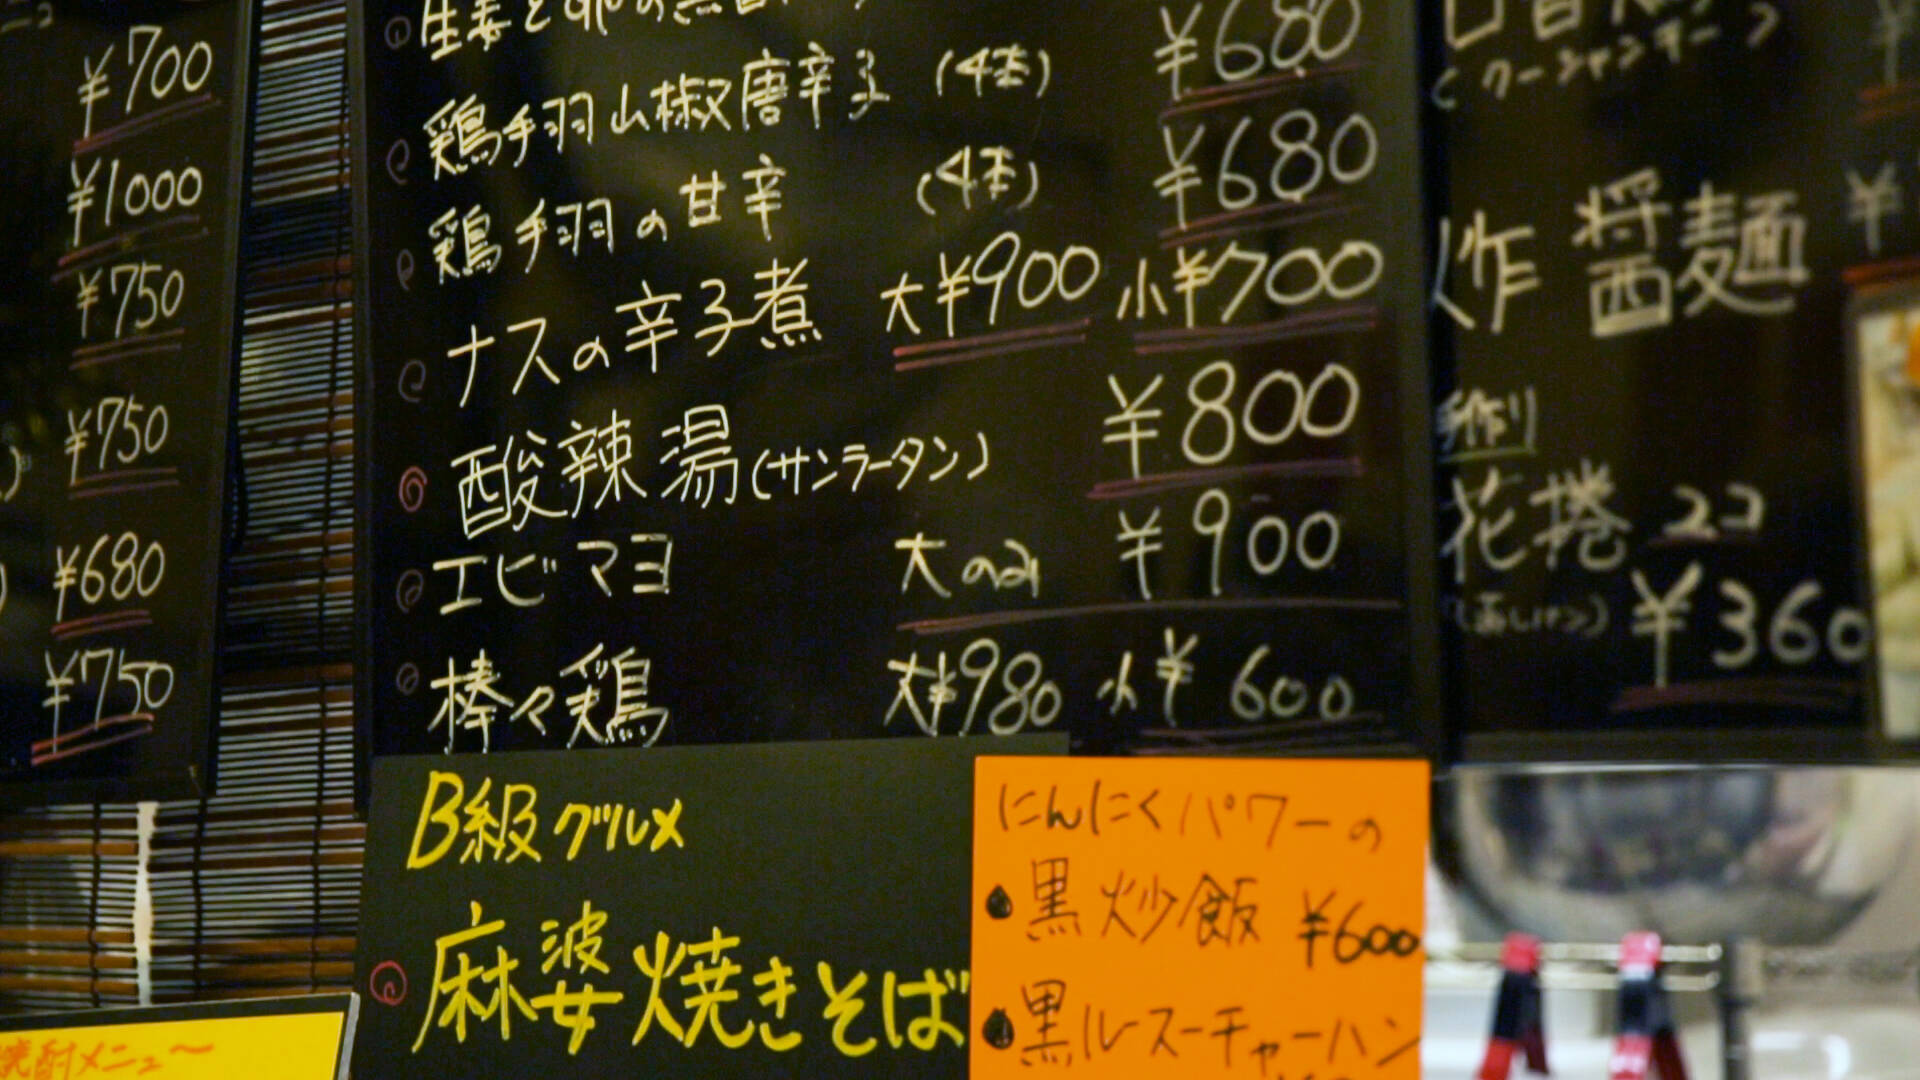 ¥700
¥1000
¥750
¥750
¥680
¥750
焼酎メニュ～
生姜と ¥680
鶏手羽山椒唐辛子 (4本) ¥680
鶏手羽の甘辛 (4本)
ナスの辛子煮 大¥900 小¥700
酸辣湯(サンラータン) ¥800
エビマヨ 大のみ ¥900
棒々鶏 大¥980 小¥600
B級グルメ
麻婆焼きそば
にんにくパワーの
黒炒飯 ¥600
黒ルースーチャーハン
作醤麺 ¥
手作り
花捲 2コ
(蒸しパン) ¥360